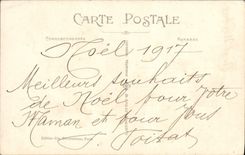 CARTE POSTALE
Noël 1917
Meilleurs souhaits
de Noël pour Votre
Maman et pour Vous